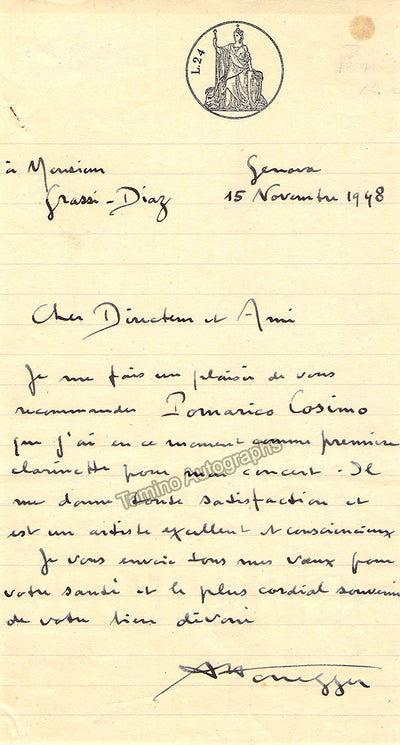 L.24
à Monsieur
Grassi-Diaz
Genova
15 Novembre 1948
Cher Directeur et Ami
Je me fais un plaisir de vous
recommander Pomarico Cosimo
que j'ai en ce moment comme première
clarinette pour mon concert. Il
me donne toute satisfaction et
est un artiste excellent et consciencieux
Je vous envoie tous mes vœux pour
votre santé et le plus cordial souvenir
de votre bien dévoué
AHonegger
Tamino Autographs